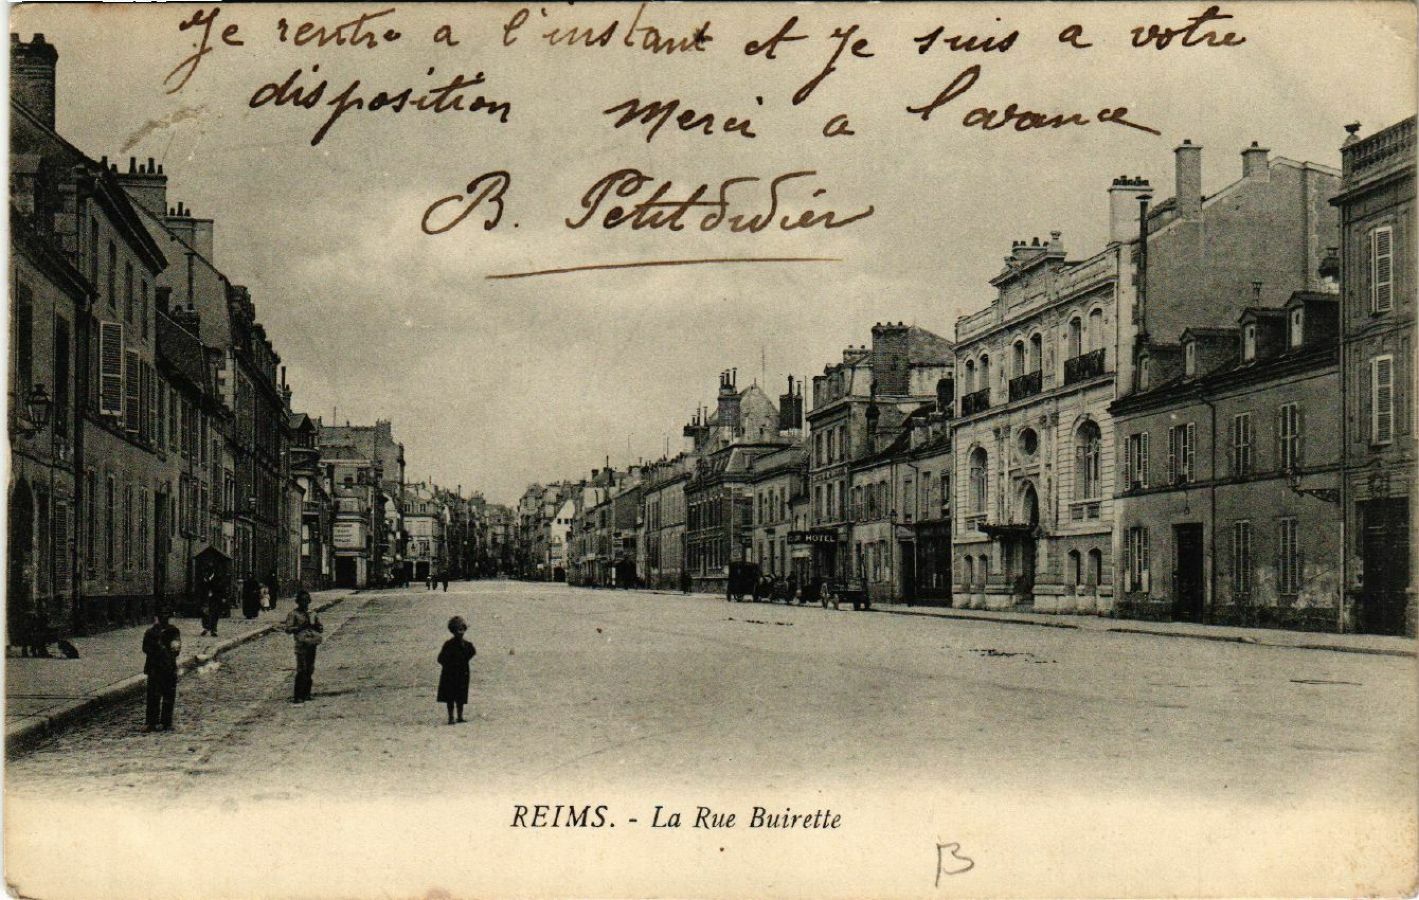 Je rentre a l'instant et je suis a votre
disposition Merci a l'avance
B. Petitdidier
HOTEL
REIMS. - La Rue Buirette
B